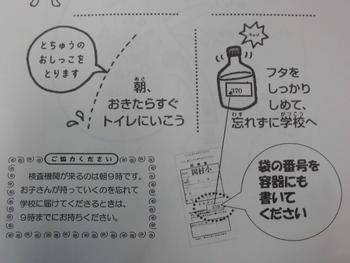 とちゅうの
おしっこを
とります
朝、
おきたらすぐ
トイレにいこう
370
フタを
しっかり
しめて、
忘れずに学校へ
ご協力ください
検査機関が来るのは朝9時です。
お子さんが持っていくのを忘れて
学校に届けてくださるときは、
9時までにお持ちください。
袋の番号を
容器にも
書いて
ください